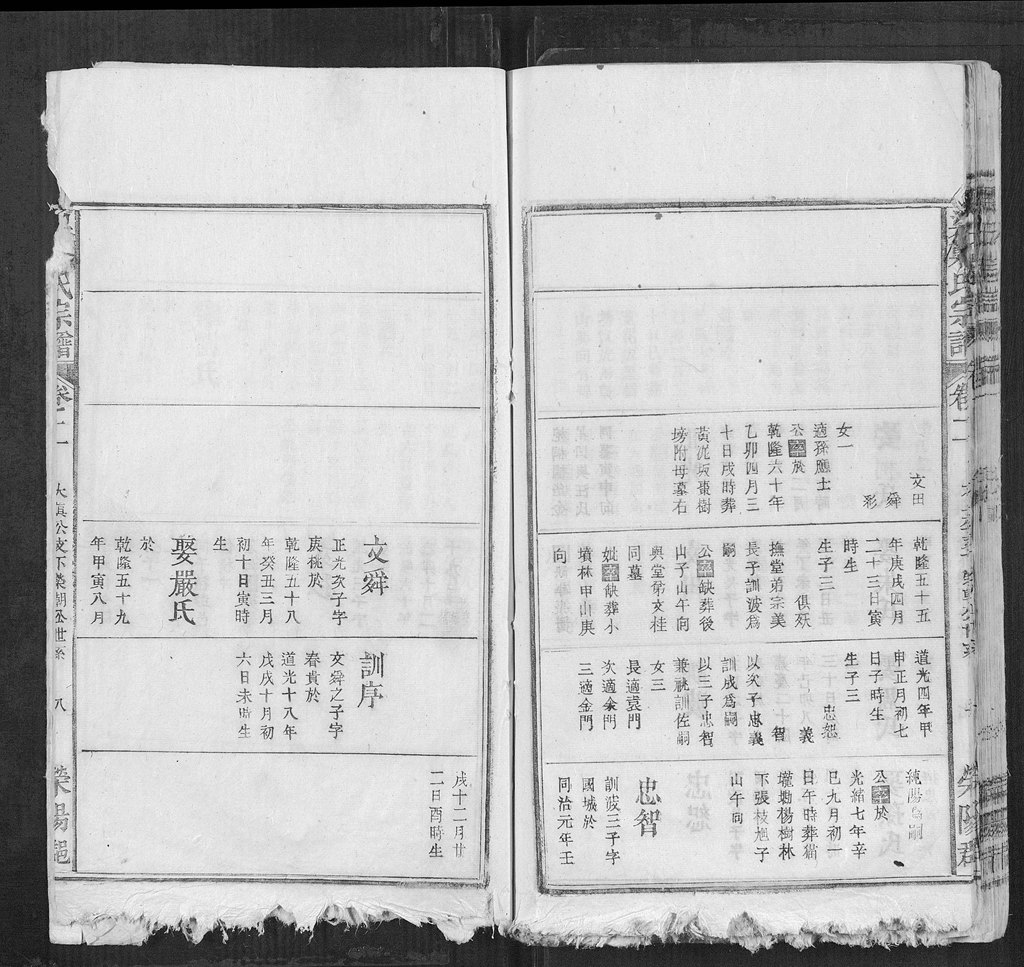 氏宗譜
卷二
文田
舜
彩
女一
適孫應士
公卒於
乾隆六十年
乙卯四月三
十日戌時葬
黃泥塝棗樹
塝附母墓右
乾隆五十五
年庚戌四月
二十三日寅
時生
生子三 俱殀
撫堂弟宗美
長子訓波爲
嗣
公卒缺葬後
山子山午向
與堂弟文桂
同墓
妣卒缺葬小
墳林甲山庚
向
道光四年甲
申正月初七
日子時生
生子三
忠恕
義
智
以次子忠義
訓成爲嗣
以三子忠智
兼祧訓佐嗣
女三
長適袁門
次適余門
三適金門
純陽爲嗣
公卒於
光緒七年辛
巳九月初一
日午時葬猫
壠坳楊樹林
下張枝旭子
山午向
忠智
訓波三子字
國城於
同治元年壬
戌十二月廿
二日酉時生
文舜
正光次子字
庚桃於
乾隆五十八
年癸丑三月
初十日寅時
生
娶嚴氏
於
乾隆五十九
年甲寅八月
訓序
文舜之子字
春貴於
道光十八年
戊戌十月初
六日未時生
氏宗譜
卷二
大眞公支下榮朝公世系
八
滎陽